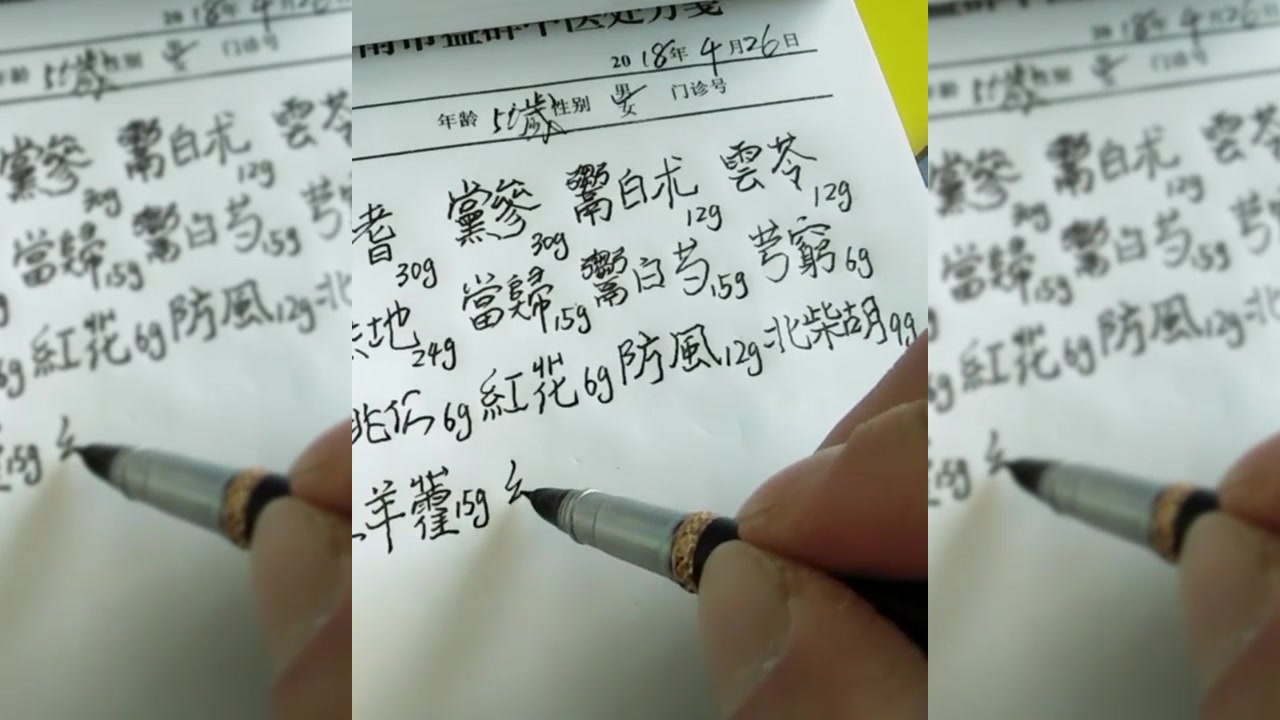 南市益群中医处方笺
2018年4月26日
年龄 51歲 性别 男 女 门诊号
耆30g 黨參30g 鬻白朮12g 雲苓12g
地24g 當歸15g 鬻白芍15g 芎窮6g
桃仁6g 紅花6g 防風12g 北柴胡9g
羊藿15g